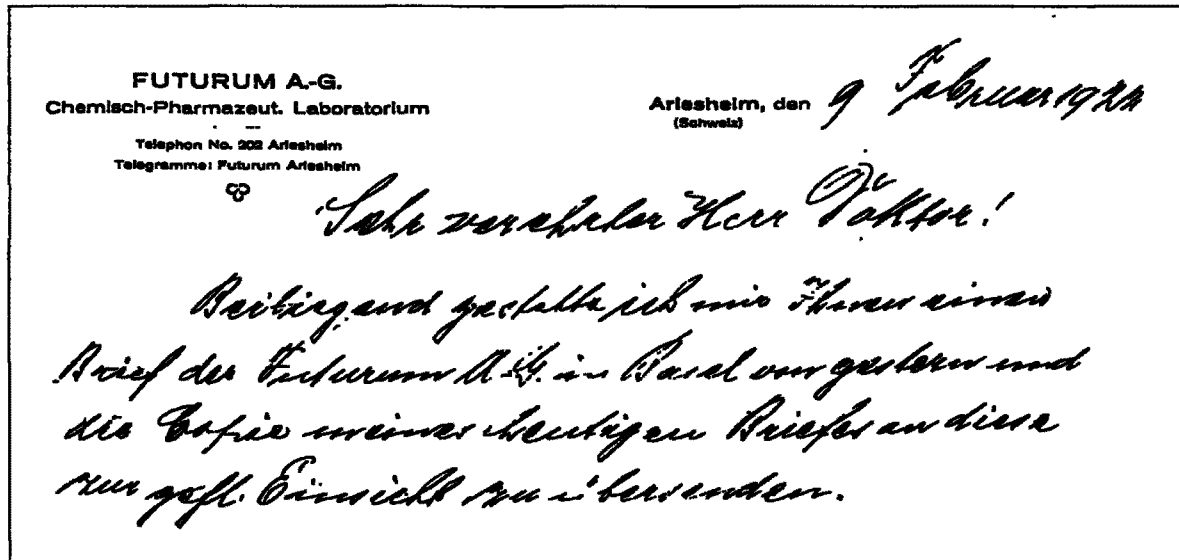 FUTURUM A.-G.
Chemisch-Pharmazeut. Laboratorium
Telephon No. 202 Arlesheim
Telegramme: Futurum Arlesheim
Arlesheim, den 9 Februar 1922
(Schweiz)
Sehr verehrter Herr Doktor!
Beiliegend gestatte ich mir Ihnen einen
Brief der Futurum A.G. in Basel von gestern und
die Copie meines heutigen Briefes an diese
zur gefl. Einsicht zu übersenden.